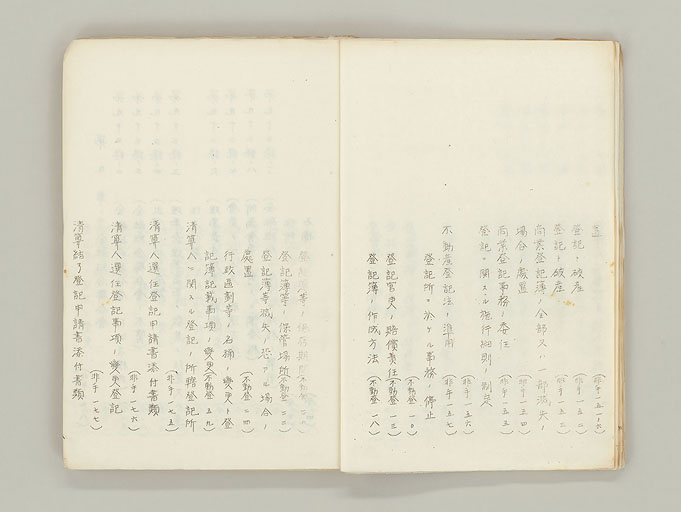 置
(非手一五一ノ六)
登記ト破産
(非手一五二)
登記ト破産
(非手一五三)
商業登記簿ノ全部又ハ一部滅失ノ
場合ノ處置
(非手一五四)
商業登記事務ノ委任
(非手一五五)
登記ニ関スル施行細則ノ制定
(非手一五六)
不動産登記法ノ準用
(非手一五七)
登記所ニ於ケル事務ノ停止
(不動登一〇)
登記官吏ノ賠償責任
(不動登一三)
登記簿ノ作成方法
(不動登一八)
登記簿等ノ保存期間
登記簿等ノ保管場所
(不動登二二)
登記簿等滅失ノ恐アル場合ノ
處置
(不動登二四)
行政區劃等ノ名稱ノ変更ト登
記簿記載事項ノ変更
(不動登五九)
清算人ニ関スル登記ノ所轄登記所
清算人選任登記申請書添付書類
(非手一七五)
清算人選任登記事項ノ変更登記
(非手一七六)
清算結了登記申請書添付書類
(非手一七七)